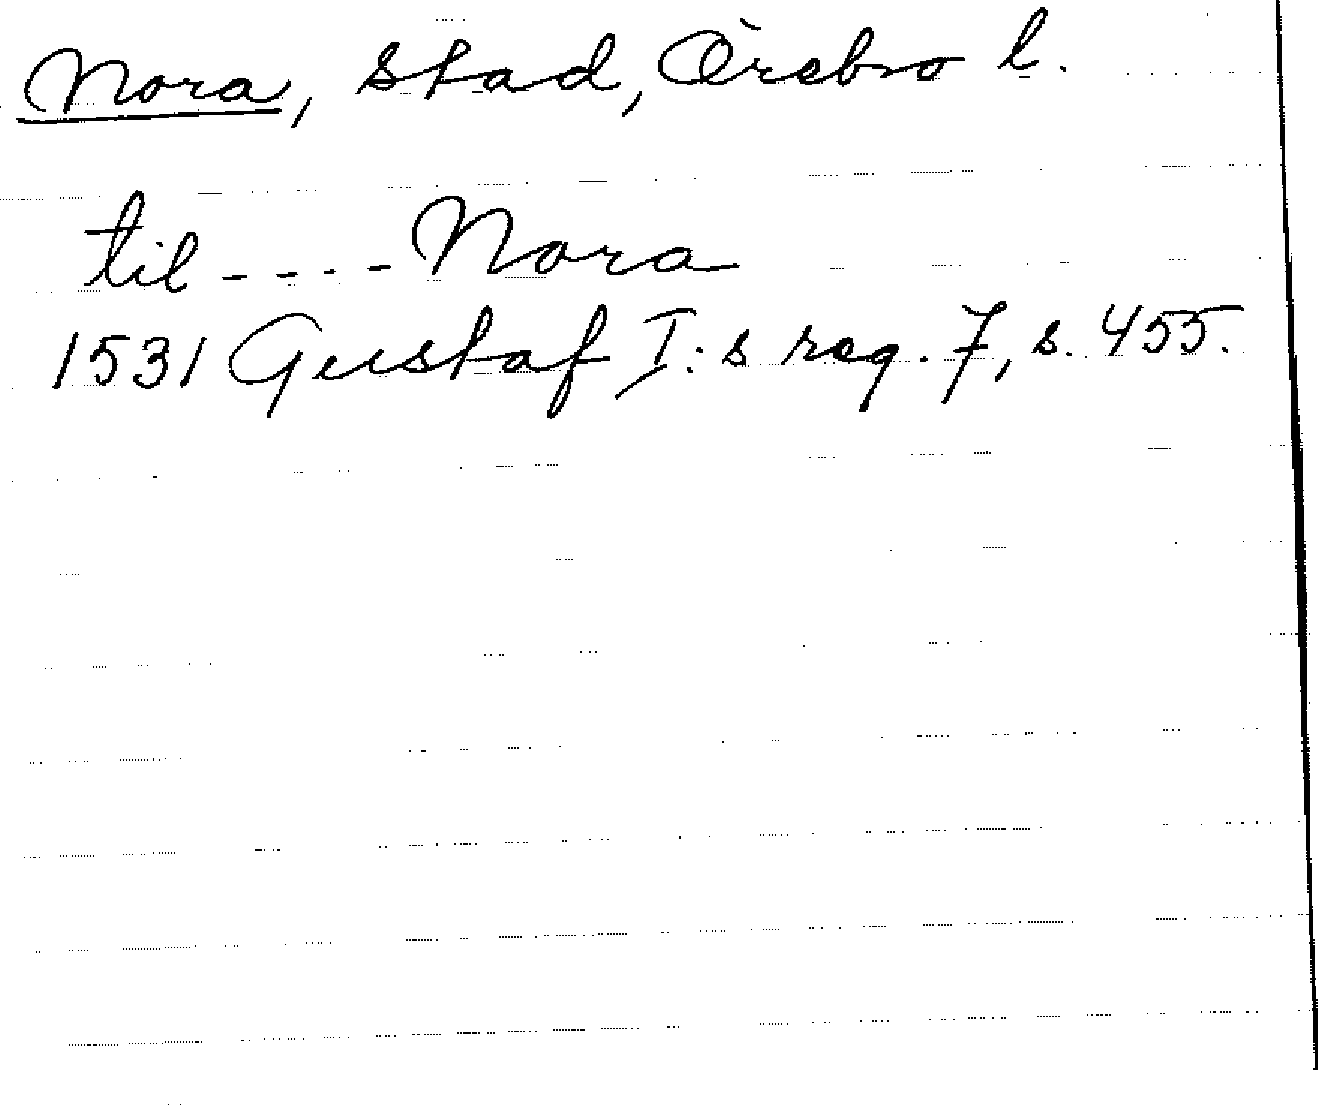 Nora, stad, Örebro l.
til - - - - Nora
1531 Gustaf I:s reg. 7, s. 455.